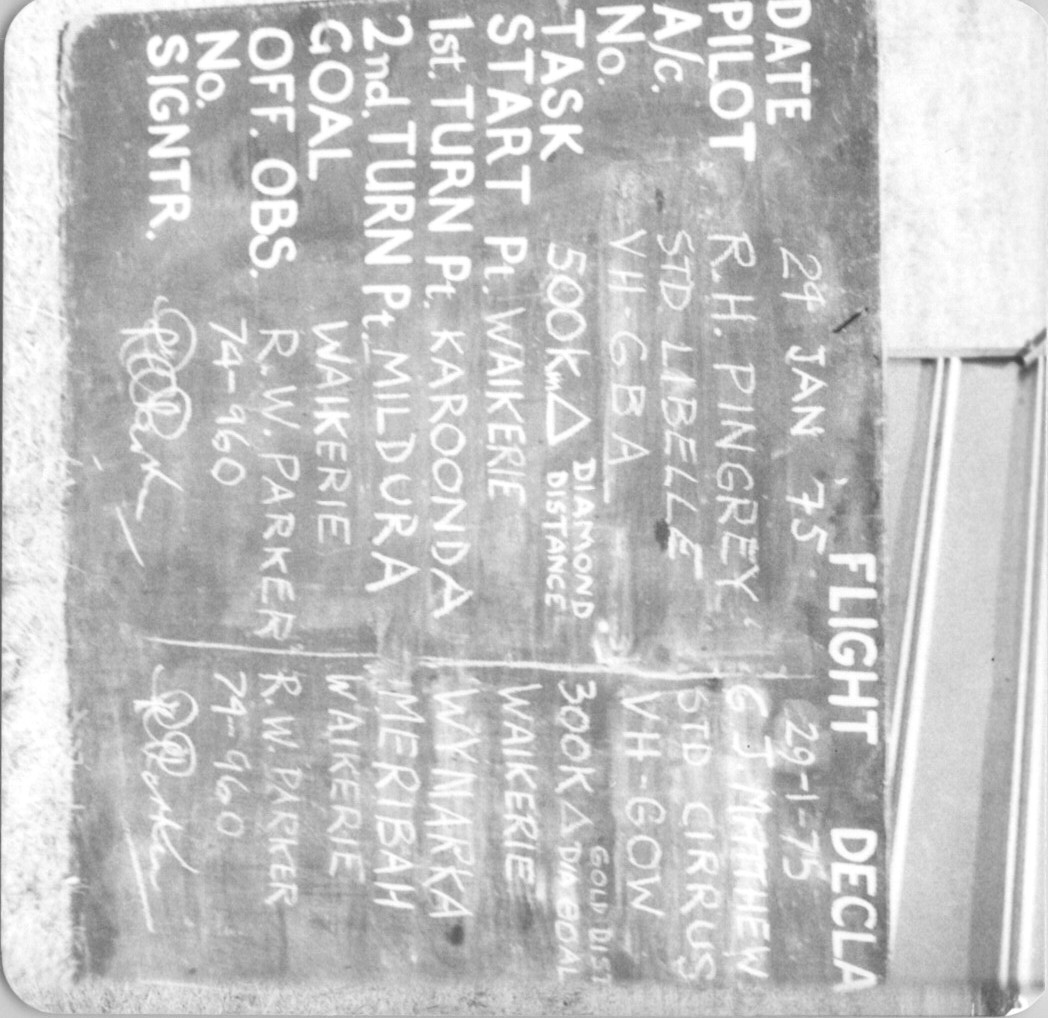 FLIGHT DECLA
DATE 29 JAN '75 29-1-75
PILOT R.H. PINGREY. G J MATTHEW
A/c. STD LABELLE STD CIRRUS
No. VH-GBA VH-GOW
TASK 500Km△ DIAMOND DISTANCE 300K△ GOLD DIST DIA GOAL
START Pt. WAIKERIE WAIKERIE
1st. TURN Pt. KAROONDA WYNARKA
2nd. TURN Pt. MILDURA MERIBAH
GOAL WAIKERIE WAIKERIE
OFF. OBS. R.W. PARKER R.W. PARKER
No. 74-960 74-960
SIGNTR.